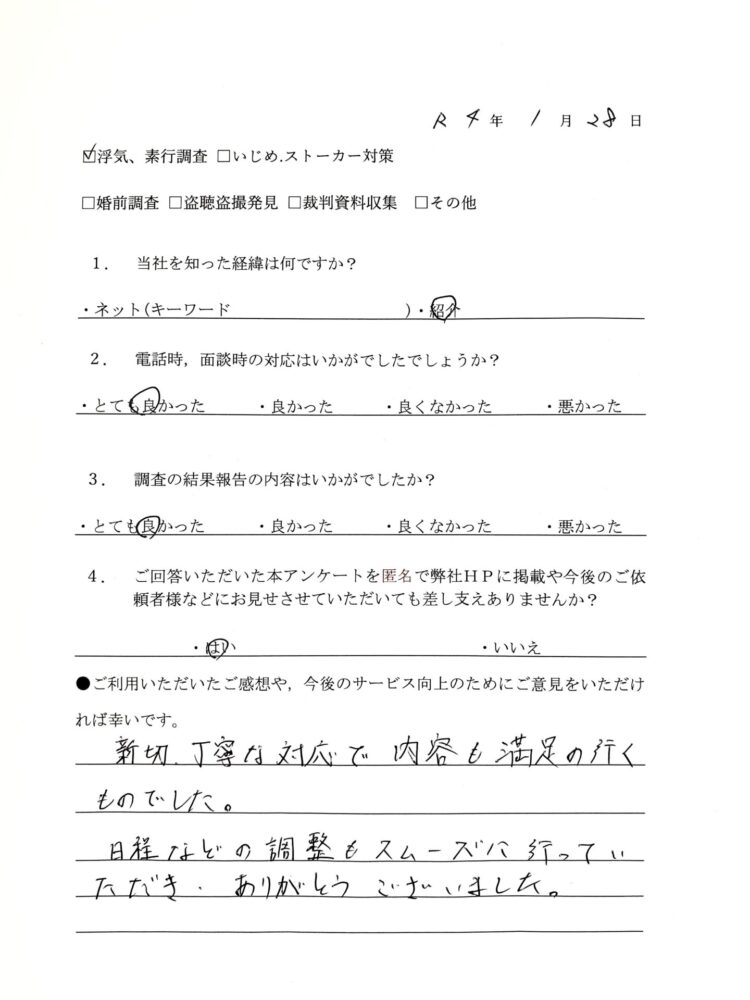 R 4年 1月 28日
☑浮気、素行調査 □いじめ.ストーカー対策
□婚前調査 □盗聴盗撮発見 □裁判資料収集 □その他
1. 当社を知った経緯は何ですか？
・ネット(キーワード )・紹介
2. 電話時，面談時の対応はいかがでしたでしょうか？
・とても良かった ・良かった ・良くなかった ・悪かった
3. 調査の結果報告の内容はいかがでしたか？
・とても良かった ・良かった ・良くなかった ・悪かった
4. ご回答いただいた本アンケートを匿名で弊社ＨＰに掲載や今後のご依
頼者様などにお見せさせていただいても差し支えありませんか？
・はい ・いいえ
●ご利用いただいたご感想や，今後のサービス向上のためにご意見をいただけ
れば幸いです。
新切、丁寧な対応で 内容も満足の行く
ものでした。
日程などの調整もスムーズに行ってい
ただき、ありがとうございました。